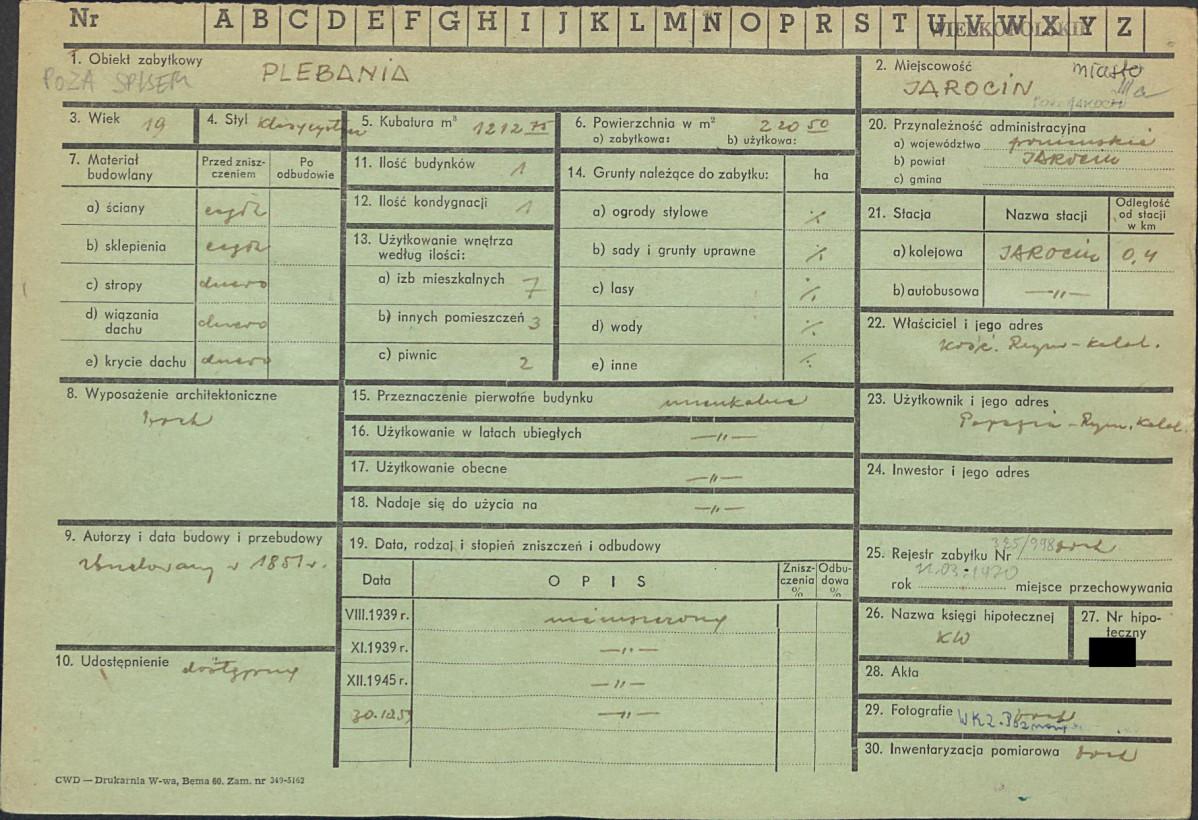 Nr A B C D E F G H I J K L M N O P R S T U V W X Y Z
WIELKOPOLSKIE
1. Obiekt zabytkowy
POZA SPISEM
PLEBANIA
2. Miejscowość miasto
JAROCIN III a
3. Wiek 19
4. Styl klasycystyczny
5. Kubatura m³ 1212 75
6. Powierzchnia w m² 220 50
a) zabytkowa: b) użytkowa:
7. Materiał budowlany
Przed znisz-
czeniem
Po
odbudowie
a) ściany cegła
b) sklepienia cegła
c) stropy drewno
d) wiązania
dachu drewno
e) krycie dachu drewno
8. Wyposażenie architektoniczne
brak
9. Autorzy i data budowy i przebudowy
zbudowany w 1851 r.
10. Udostępnienie dostępny
11. Ilość budynków 1
12. Ilość kondygnacji 1
13. Użytkowanie wnętrza
według ilości:
a) izb mieszkalnych 7
b) innych pomieszczeń 3
c) piwnic 2
14. Grunty należące do zabytku: ha
a) ogrody stylowe ·/.
b) sady i grunty uprawne ·/.
c) lasy ·/.
d) wody ·/.
e) inne ·/.
15. Przeznaczenie pierwotne budynku mieszkalne
16. Użytkowanie w latach ubiegłych —"—
17. Użytkowanie obecne —"—
18. Nadaje się do użycia na —"—
19. Data, rodzaj i stopień zniszczeń i odbudowy
Data OPIS
Znisz-
czenia
%
Odbu-
dowa
%
VIII.1939 r. niezniszczony
XI.1939 r. —"—
XII.1945 r. —"—
30.12.59 —"—
20. Przynależność administracyjna
a) województwo poznańskie
b) powiat Jarocin
c) gmina
21. Stacja Nazwa stacji
Odległość
od stacji
w km
a) kolejowa JAROCIN 0,4
b) autobusowa —"—
22. Właściciel i jego adres
Kość. Rzym-Katol.
23. Użytkownik i jego adres
Parafia - Rzym. Katol.
24. Inwestor i jego adres
25. Rejestr zabytku Nr 335/998 brak
11.03.1970
rok miejsce przechowywania
26. Nazwa księgi hipotecznej
KW
27. Nr hipo-
teczny
28. Akta
29. Fotografie brak
WKZ. Poznań
30. Inwentaryzacja pomiarowa brak
CWD — Drukarnia W-wa, Bema 60. Zam. nr 349-5162